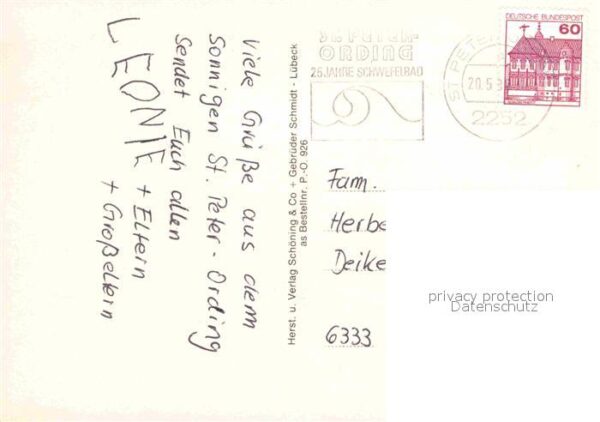 Viele Grüße aus dem
Sonnigen St. Peter-Ording
Sendet Euch allen
LEONIE + Eltern
+ Großeltern
Herst. u. Verlag Schöning & Co + Gebrüder Schmidt - Lübeck
as Bestellnr. P.-O. 926
ST. PETER-
ORDING
25 JAHRE SCHWEFELBAD
ST. PETER
20.5.
2252
DEUTSCHE BUNDESPOST
60
Fam.
Herbe
Deike
6333
privacy protection
Datenschutz